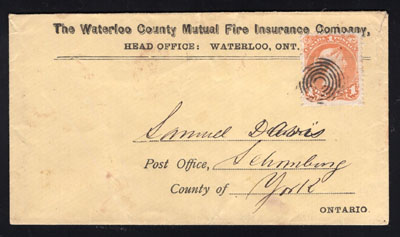 The Waterloo County Mutual Fire Insurance Company,
HEAD OFFICE: WATERLOO, ONT.
1 1
Samuel Davis
Post Office, Schomburg
County of York
ONTARIO